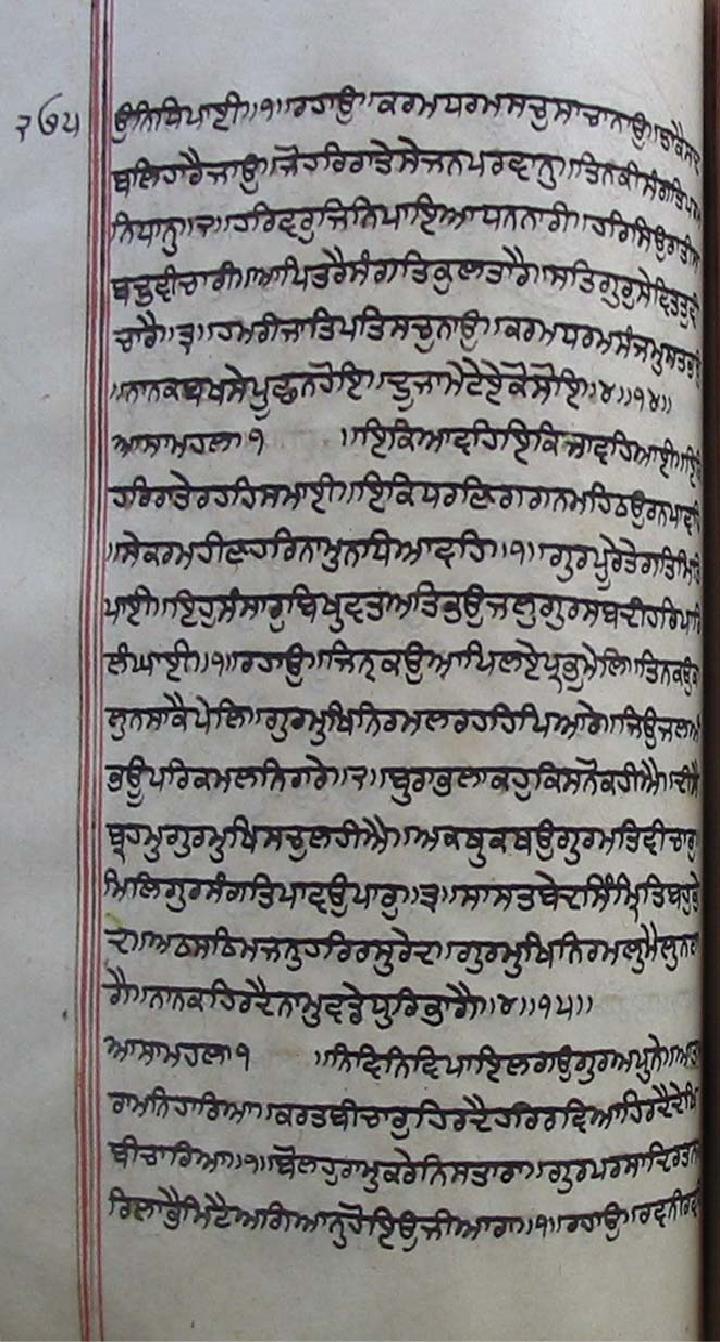 ੨੭੫
ਉਨਿਧਿਪਾਈ॥੧॥ਰਹਾਉ॥ਕਰਮਧਰਮਸਚੁਸਾਚਾਨਾਉ॥ਤਾਕੈਸਦ
ਬਲਿਹਾਰੈਜਾਉ॥ਜੋਹਰਿਰਾਤੇਸੇਜਨਪਰਵਾਨੁ॥ਤਿਨਕੀਸੰਗਤਿਪਰਮ
ਨਿਧਾਨੁ॥੨॥ਹਰਿਵਰੁਜਿਨਿਪਾਇਆਧਨਨਾਰੀ॥ਹਰਿਸਿਉਰਾਤੀਸ
ਬਦੁਵੀਚਾਰੀ॥ਆਪਿਤਰੈਸੰਗਤਿਕੁਲਤਾਰੈ॥ਸਤਿਗੁਰੁਸੇਵਿਤਤੁਵੀ
ਚਾਰੈ॥੩॥ਹਮਰੀਜਾਤਿਪਤਿਸਚੁਨਾਉ॥ਕਰਮਧਰਮਸੰਜਮੁਸਤਭਾਉ
॥ਨਾਨਕਬਖਸੇਪੂਛਨਹੋਇ॥ਦੂਜਾਮੇਟੇਏਕੋਸੋਇ॥੪॥੧੪॥
ਆਸਾਮਹਲਾ੧ ॥ਇਕਿਆਵਹਿਇਕਿਜਾਵਹਿਆਈ॥ਇਕਿ
ਹਰਿਰਾਤੇਰਹਹਿਸਮਾਈ॥ਇਕਿਧਰਣਿਗਗਨਮਹਿਠਉਰਨਪਾਵਹਿ
॥ਸੇਕਰਮਹੀਣਹਰਿਨਾਮੁਨਧਿਆਵਹਿ॥੧॥ਗੁਰਪੂਰੇਤੇਗਤਿਮਿਤਿ
ਪਾਈ॥ਇਹੁਸੰਸਾਰੁਬਿਖੁਵਤਅਤਿਭਉਜਲੁਗੁਰਸਬਦੀਹਰਿਪਾਰਿ
ਲੰਘਾਈ॥੧॥ਰਹਾਉ॥ਜਿਨੑਕਉਆਪਿਲਏਪ੍ਰਭੁਮੇਲਿ॥ਤਿਨਕਉਕਾ
ਲੁਨਸਾਕੈਪੇਲਿ॥ਗੁਰਮੁਖਿਨਿਰਮਲਰਹਹਿਪਿਆਰੇ॥ਜਿਉਜਲਅੰ
ਭਊਪਰਿਕਮਲਨਿਰਾਰੇ॥੨॥ਬੁਰਾਭਲਾਕਹੁਕਿਸਨੋਕਹੀਐ॥ਦੀਸੈ
ਬ੍ਰਹਮੁਗੁਰਮੁਖਿਸਚੁਲਹੀਐ॥ਅਕਥੁਕਥਉਗੁਰਮਤਿਵੀਚਾਰੁ
ਮਿਲਿਗੁਰਸੰਗਤਿਪਾਵਉਪਾਰੁ॥੩॥ਸਾਸਤਬੇਦਸਿੰਮ੍ਰਿਤਿਬਹੁਭੇ
ਦ॥ਅਠਸਠਿਮਜਨੁਹਰਿਰਸੁਰੇਦ॥ਗੁਰਮੁਖਿਨਿਰਮਲੁਮੈਲੁਨਲਾ
ਗੈ॥ਨਾਨਕਹਿਰਦੈਨਾਮੁਵਡੇਧੁਰਿਭਾਗੈ॥੪॥੧੫॥
ਆਸਾਮਹਲਾ੧ ॥ਨਿਵਿਨਿਵਿਪਾਇਲਗਉਗੁਰਅਪੁਨੇ॥ਆਤਮ
ਰਾਮਨਿਹਾਰਿਆ॥ਕਰਤਬੀਚਾਰੁਹਿਰਦੈਹਰਿਰਵਿਆਹਿਰਦੈਦੇਖਿ
ਬੀਚਾਰਿਆ॥੧॥ਬੋਲਹੁਰਾਮੁਕਰੇਨਿਸਤਾਰਾ॥ਗੁਰਪਰਸਾਦਿਰਤਨੁ
ਰਿਲਾਭੈਮਿਟੈਅਗਿਆਨੁਹੋਇਉਜੀਆਰਾ॥੧॥ਰਹਾਉ॥ਰਵਨੀਰਵੈ